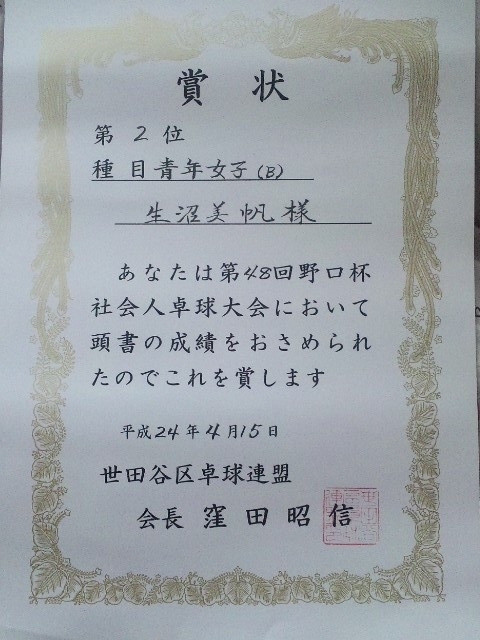 賞状
第2位
種目青年女子(B)
生沼美帆様
あなたは第48回野口杯
社会人卓球大会において
頭書の成績をおさめられ
たのでこれを賞します
平成24年4月15日
世田谷区卓球連盟
会長 窪田昭信